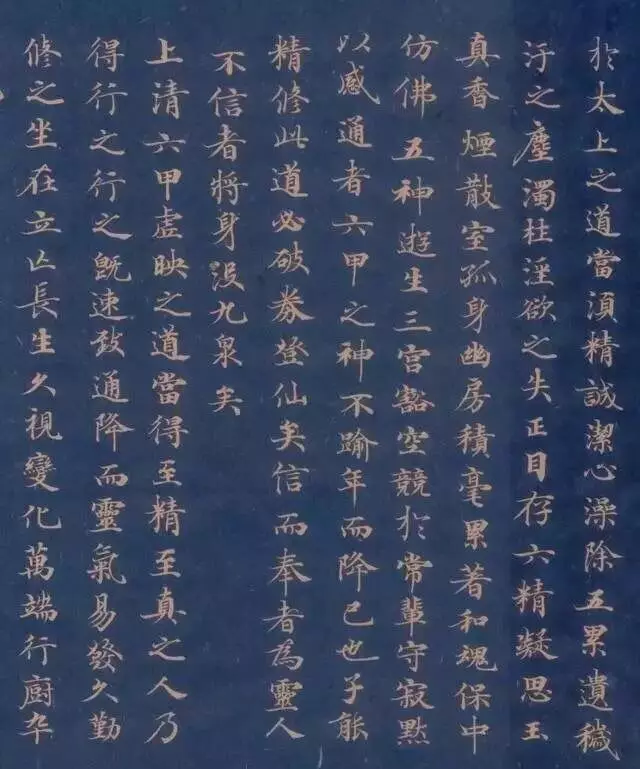 於太上之道當湏精誠潔心澡除五累遺穢
汙之塵濁杜淫欲之失正目存六精凝思玉
真香煙散室孤身幽房積毫累著和魂保中
仿佛五神遊生三宮豁空競於常輩守寂默
以感通者六甲之神不踰年而降己也子能
精修此道必破券登仙矣信而奉者為靈人
不信者將身沒九泉矣
上清六甲虛映之道當得至精至真之人乃
得行之行之既速致通降而靈氣易發久勤
修之坐在立亡長生久視變化萬端行廚卒